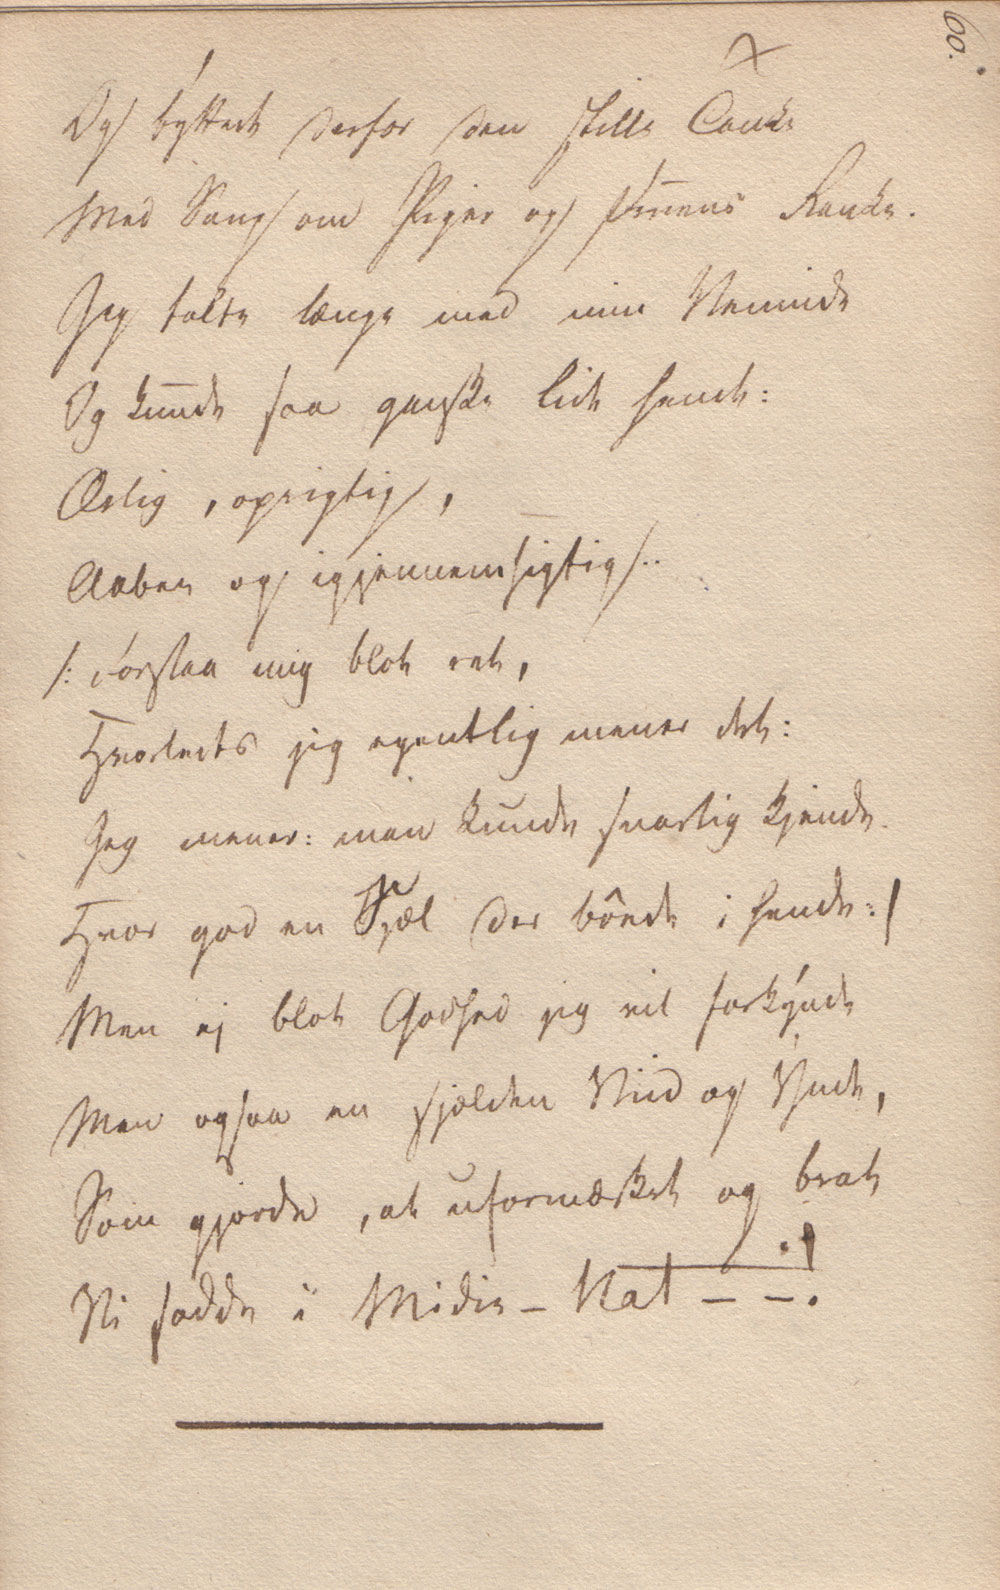 60.
Og byttede derfor den stille Tanke
Med Sang om Piger og Vinens Ranke.
Jeg talte længe med min Veninde
Og kunde saa ganske lide hende:
Ærlig, oprigtig,
Aaben og igjennemsigtig..
/: Forstaa mig blot ret,
Hvorledes jeg egentlig mener det:
Jeg mener: man kunde snarlig kjende
Hvor god en Sjæl der boede i hende :/
Men ej blot Godhed jeg vil forkynde
Men ogsaa en sjelden Vid og Ynde,
Som gjorde, at uformærket og brat
Vi sadde i Midie-Nat – – .!